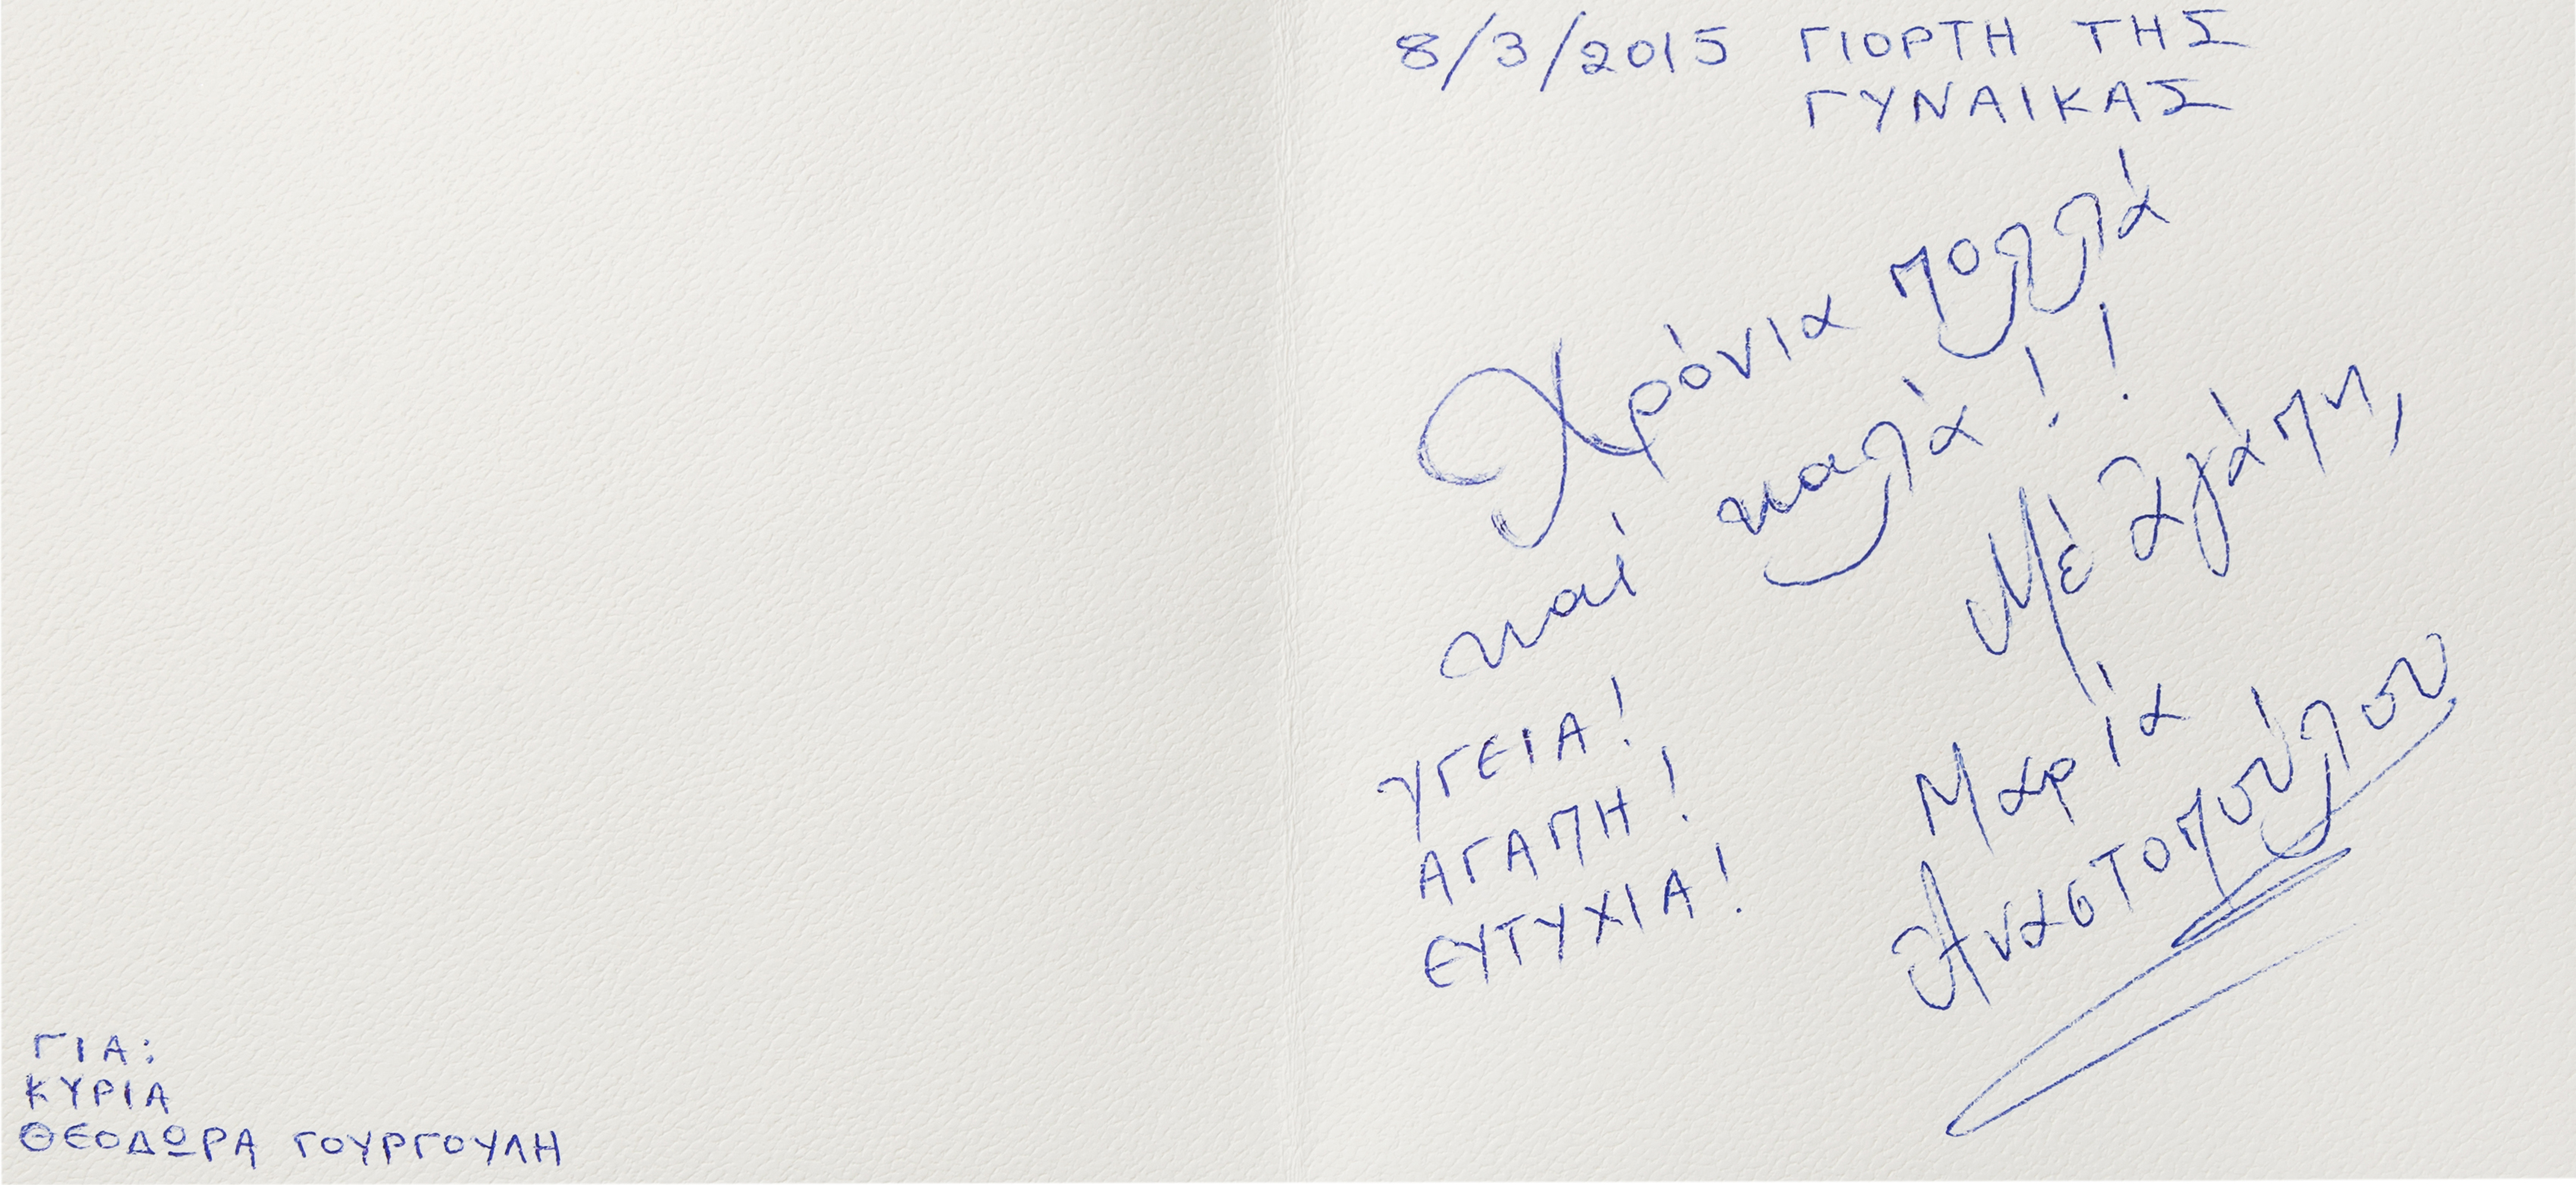 8/3/2015 ΓΙΟΡΤΗ ΤΗΣ
ΓΥΝΑΙΚΑΣ
Χρόνια πολλά
καί καλά!!
Μέ ἀγάπη,
Μαρία
Ἀναστοπούλου
ΥΓΕΙΑ!
ΑΓΑΠΗ!
ΕΥΤΥΧΙΑ!
ΓΙΑ:
ΚΥΡΙΑ
ΘΕΟΔΩΡΑ ΓΟΥΡΓΟΥΛΗ